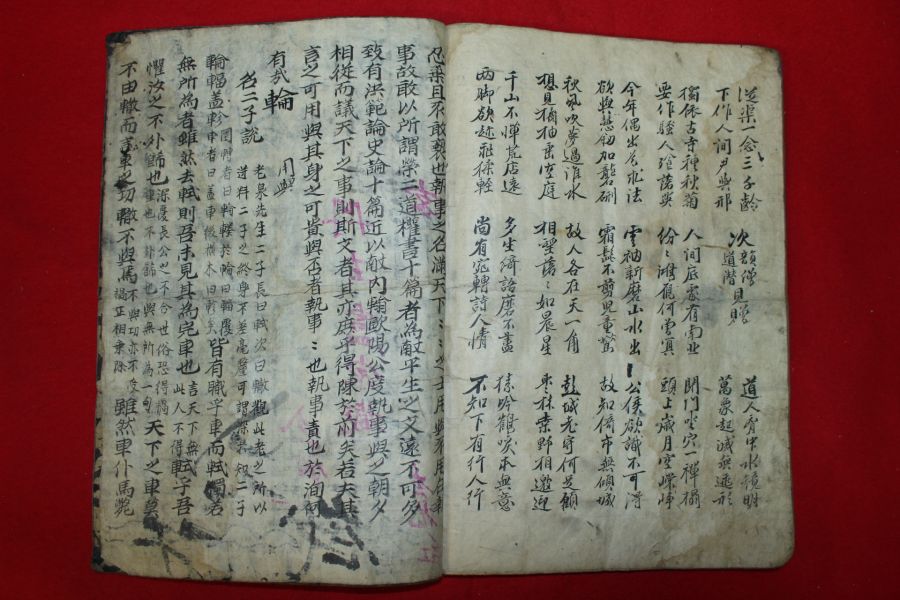 從渠一念三千齡
下作人間尹與邢
次韻僧
道潛見贈
道人胷中水鏡明
萬象起滅無逃形
獨依古寺種秋菊
要伴騷人飡落英
人間底處有南北
紛〻鴻鴈何曾冥
閉門坐穴一禪榻
頭上歲月空崢嶸
今年偶出爲求法
欲與慧劒加礱硎
雲衲新磨山水出
霜髭不剪兒童驚
公侯欲識不可得
故知倚市無傾城
秋風吹夢過淮水
想見橘柚垂空庭
故人各在天一角
相望落〻如晨星
彭城老守何足顧
棗林桑野相邀迎
千山不憚荒店遠
兩脚欲趂飛猱輕
多生綺語磨不盡
尚有宛轉詩人情
猿吟鶴唳本無意
不知下有行人行
忍棄且不敢褻也執事之名滿天下〻〻之士用與不用在執
事故敢以所謂策二道權書十篇者爲献平生之文遠不可多
致有洪範論史論十篇近以献內翰歐陽公度執事與之朝夕
相從而議天下之事則斯文者其亦庶乎得陳於前矣若夫其
言之可用與其身之可貴與否者執事〻也執事責也於洵何
有哉
輪
用與
名二子說
老泉先生二子長曰軾次曰轍觀此老之所以
逆料二子之終身不差毫釐可謂深知二子
輪輻盖軫
皆有職乎車而軾獨若
無所爲者雖然去軾則吾未見其爲完車也軾乎吾
懼汝之不外飾也
天下之車莫
不由轍而言車之功轍不與焉
雖然車仆馬斃